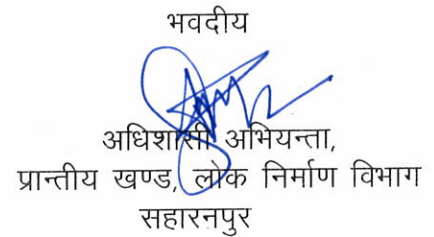 भवदीय
अधिशासी अभियन्ता,
प्रान्तीय खण्ड, लोक निर्माण विभाग
सहारनपुर